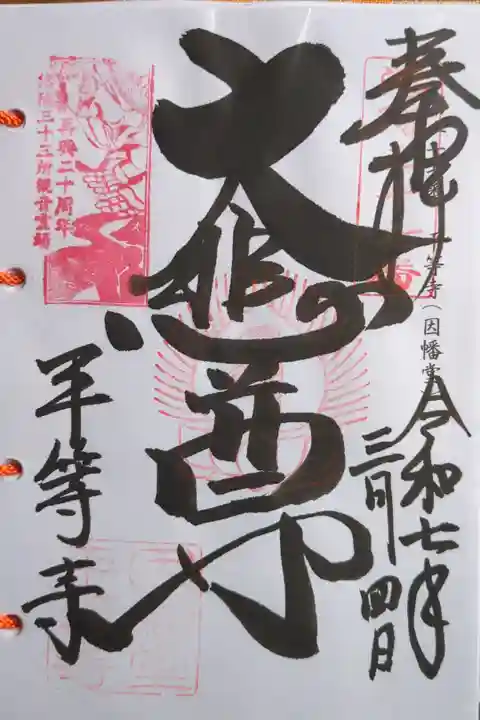 奉拝
等寺(因幡堂
令和七年
三月四日
大悲尊
再興二十周年
三十三所観音霊場
平等寺